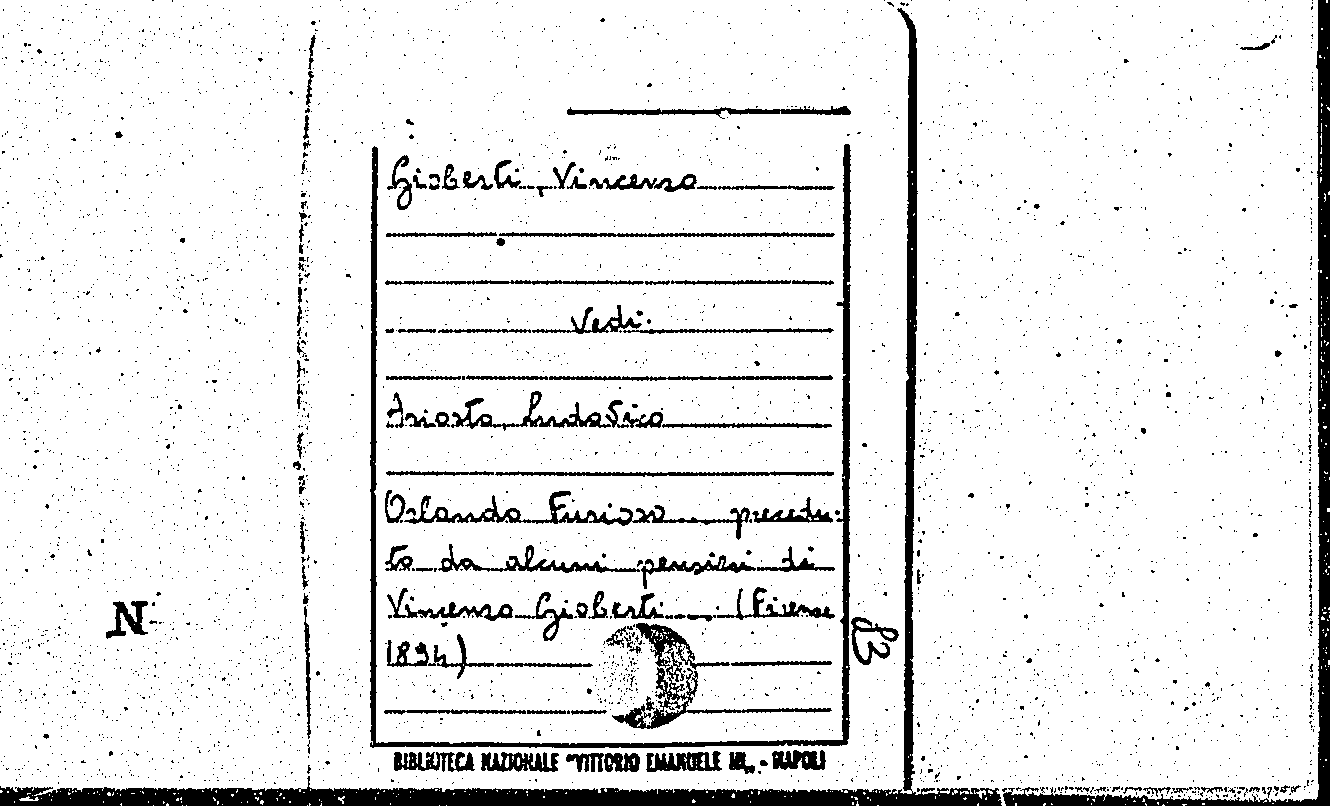 Gioberti, Vincenzo
Vedi:
Ariosto, Ludovico
Orlando Furioso ... precedu-
to da alcuni pensieri di
Vincenzo Gioberti ... (Firenze
1894)
N
83
BIBLIOTECA NAZIONALE "VITTORIO EMANUELE III„ - NAPOLI